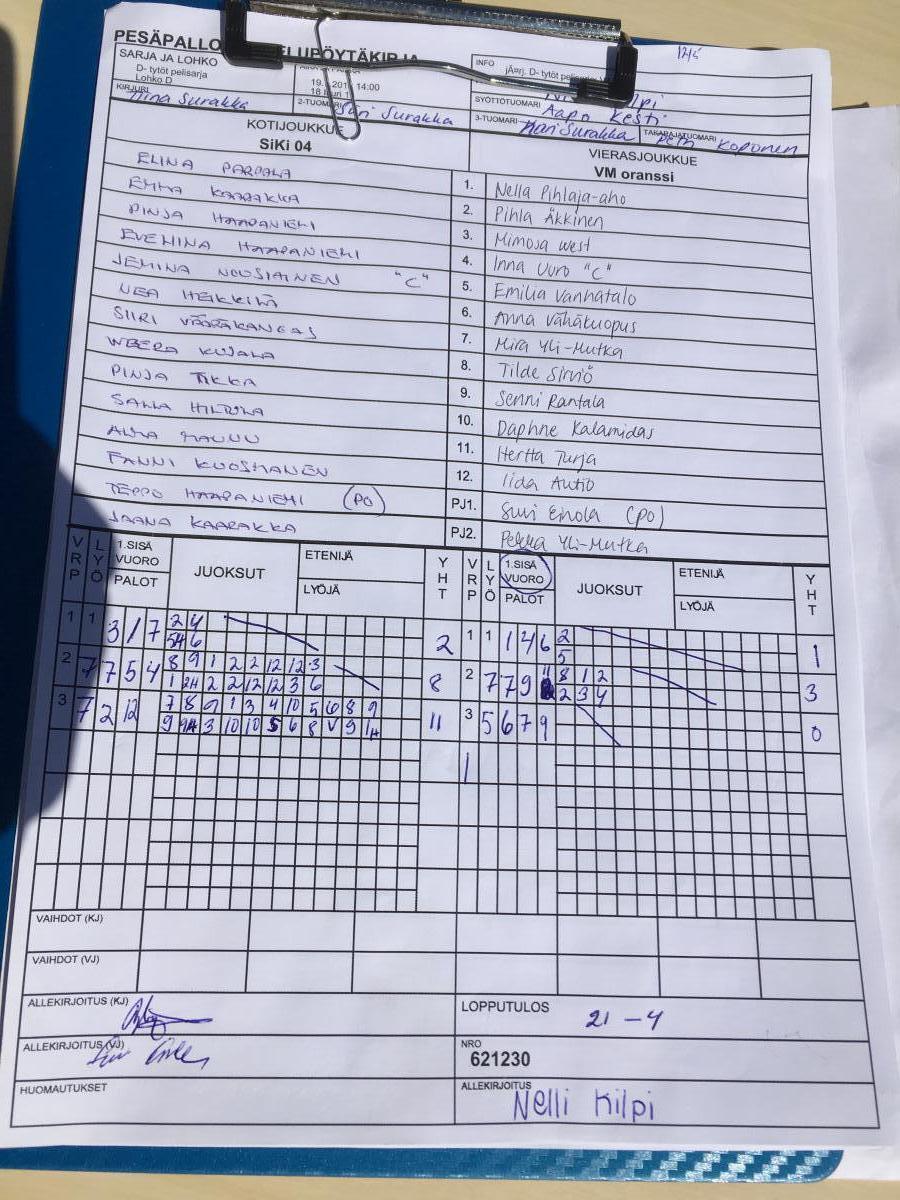 PESÄPALLO ELUPÖYTÄKIRJA
1245
SARJA JA LOHKO
D- tytöt pelisarja
Lohko D
19. 201 14:00
INFO
jÃ¤rj. D- tytöt pelisarja
KIRJURI
Nina Surakka
2-TUOMARI
Suri Surakka
SYÖTTÖTUOMARI
Aapo Kesti
3-TUOMARI
Mari Surakka
TAKARAJATUOMARI
Petri Koponen
KOTIJOUKKUE
SiKi 04
VIERASJOUKKUE
VM oranssi
ELINA PARPALA 1. Nella Pihlaja-aho
EMMA KAARAKKA 2. Pihla Äkkinen
PINJA HAAPANIEMI 3. Mimosa West
EVEMINA HAAPANIEMI 4. Inna Uuro "C"
JEMINA NOUSIAINEN "C" 5. Emilia Vanhatalo
NEA HEIKKILÄ 6. Anna Vähäkuopus
SIIRI VÄÄRÄKANGAS 7. Mira Yli-Mutka
WEERA KUJALA 8. Tilde Sirviö
PINJA TIKKA 9. Senni Rantala
SALLA HILTULA 10. Daphne Kalamidas
ALMA MAUNU 11. Hertta Turja
FANNI KUOSMANEN 12. Iida Autio
TEPPO HAAPANIEMI (PO) PJ1. Suvi Einola (PO)
JAANA KAARAKKA PJ2. Pekka Yli-Mutka
VRP LYÖ 1.SISÄ VUORO PALOT JUOKSUT ETENIJÄ LYÖJÄ YHT VRP LYÖ 1.SISÄ VUORO PALOT JUOKSUT ETENIJÄ LYÖJÄ YHT
1 1 3 / 7 2 4 2 1 1 1 4 6 2 1
5H 6 5
2 7 7 5 4 8 9 1 2 2 12 12 3 8 2 7 7 9 11 8 1 2 3
1 2H 2 2 12 12 3 6 2 3 4
3 7 2 12 7 8 9 1 3 4 10 5 6 8 9 11 3 5 6 7 9 0
9 9H 3 10 10 5 6 8 V 9 1H
1
VAIHDOT (KJ)
VAIHDOT (VJ)
ALLEKIRJOITUS (KJ)
LOPPUTULOS
21 - 4
ALLEKIRJOITUS (VJ)
NRO
621230
HUOMAUTUKSET
ALLEKIRJOITUS
Nelli Kilpi